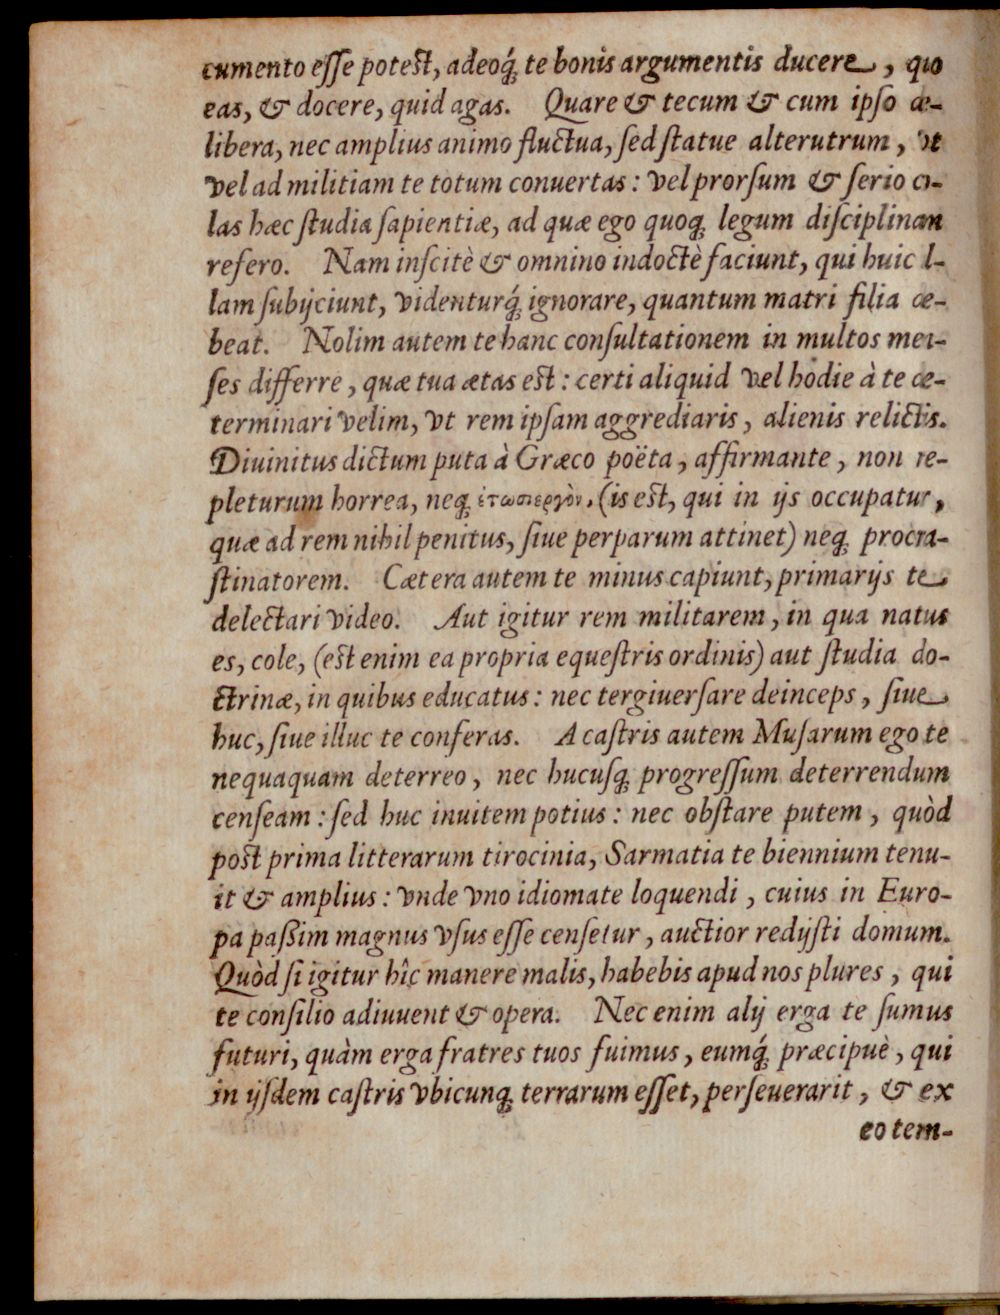 cumento eſſe poteſt, adeoq́; te bonis argumentis ducere, quo
eas, & docere, quid agas. Quare & tecum & cum ipſo de-
libera, nec amplius animo fluctua, ſed ſtatue alterutrum, vt
vel ad militiam te totum conuertas: vel prorſum & ſerio co-
las hæc ſtudia ſapientiæ, ad quæ ego quoq; legum diſciplinam
refero. Nam inſcitè & omnino indoctè faciunt, qui huic il-
lam ſubijciunt, videnturq́; ignorare, quantum matri filia de-
beat. Nolim autem te hanc conſultationem in multos men-
ſes differre, quæ tua ætas eſt: certi aliquid vel hodie à te de-
terminari velim, vt rem ipſam aggrediaris, alienis relictis.
Diuinitus dictum puta à Græco poëta, affirmante, non re-
pleturum horrea, neq; ἐτωσιεργὸν, (is eſt, qui in ijs occupatur,
quæ ad rem nihil penitus, ſiue perparum attinet) neq; procra-
ſtinatorem. Cætera autem te minus capiunt, primarijs te
delectari video. Aut igitur rem militarem, in qua natus
es, cole, (eſt enim ea propria equeſtris ordinis) aut ſtudia do-
ctrinæ, in quibus educatus: nec tergiuerſare deinceps, ſiue
huc, ſiue illuc te conferas. A caſtris autem Muſarum ego te
nequaquam deterreo, nec hucuſq; progreſſum deterrendum
cenſeam: ſed huc inuitem potius: nec obſtare putem, quòd
poſt prima litterarum tirocinia, Sarmatia te biennium tenu-
it & amplius: vnde vno idiomate loquendi, cuius in Euro-
pa paßim magnus vſus eſſe cenſetur, auctior redijſti domum.
Quòd ſi igitur hîc manere malis, habebis apud nos plures, qui
te conſilio adiuuent & opera. Nec enim alij erga te ſumus
futuri, quàm erga fratres tuos fuimus, eumq́; præcipuè, qui
in ijſdem caſtris vbicunq; terrarum eſſet, perſeuerarit, & ex
eo tem-